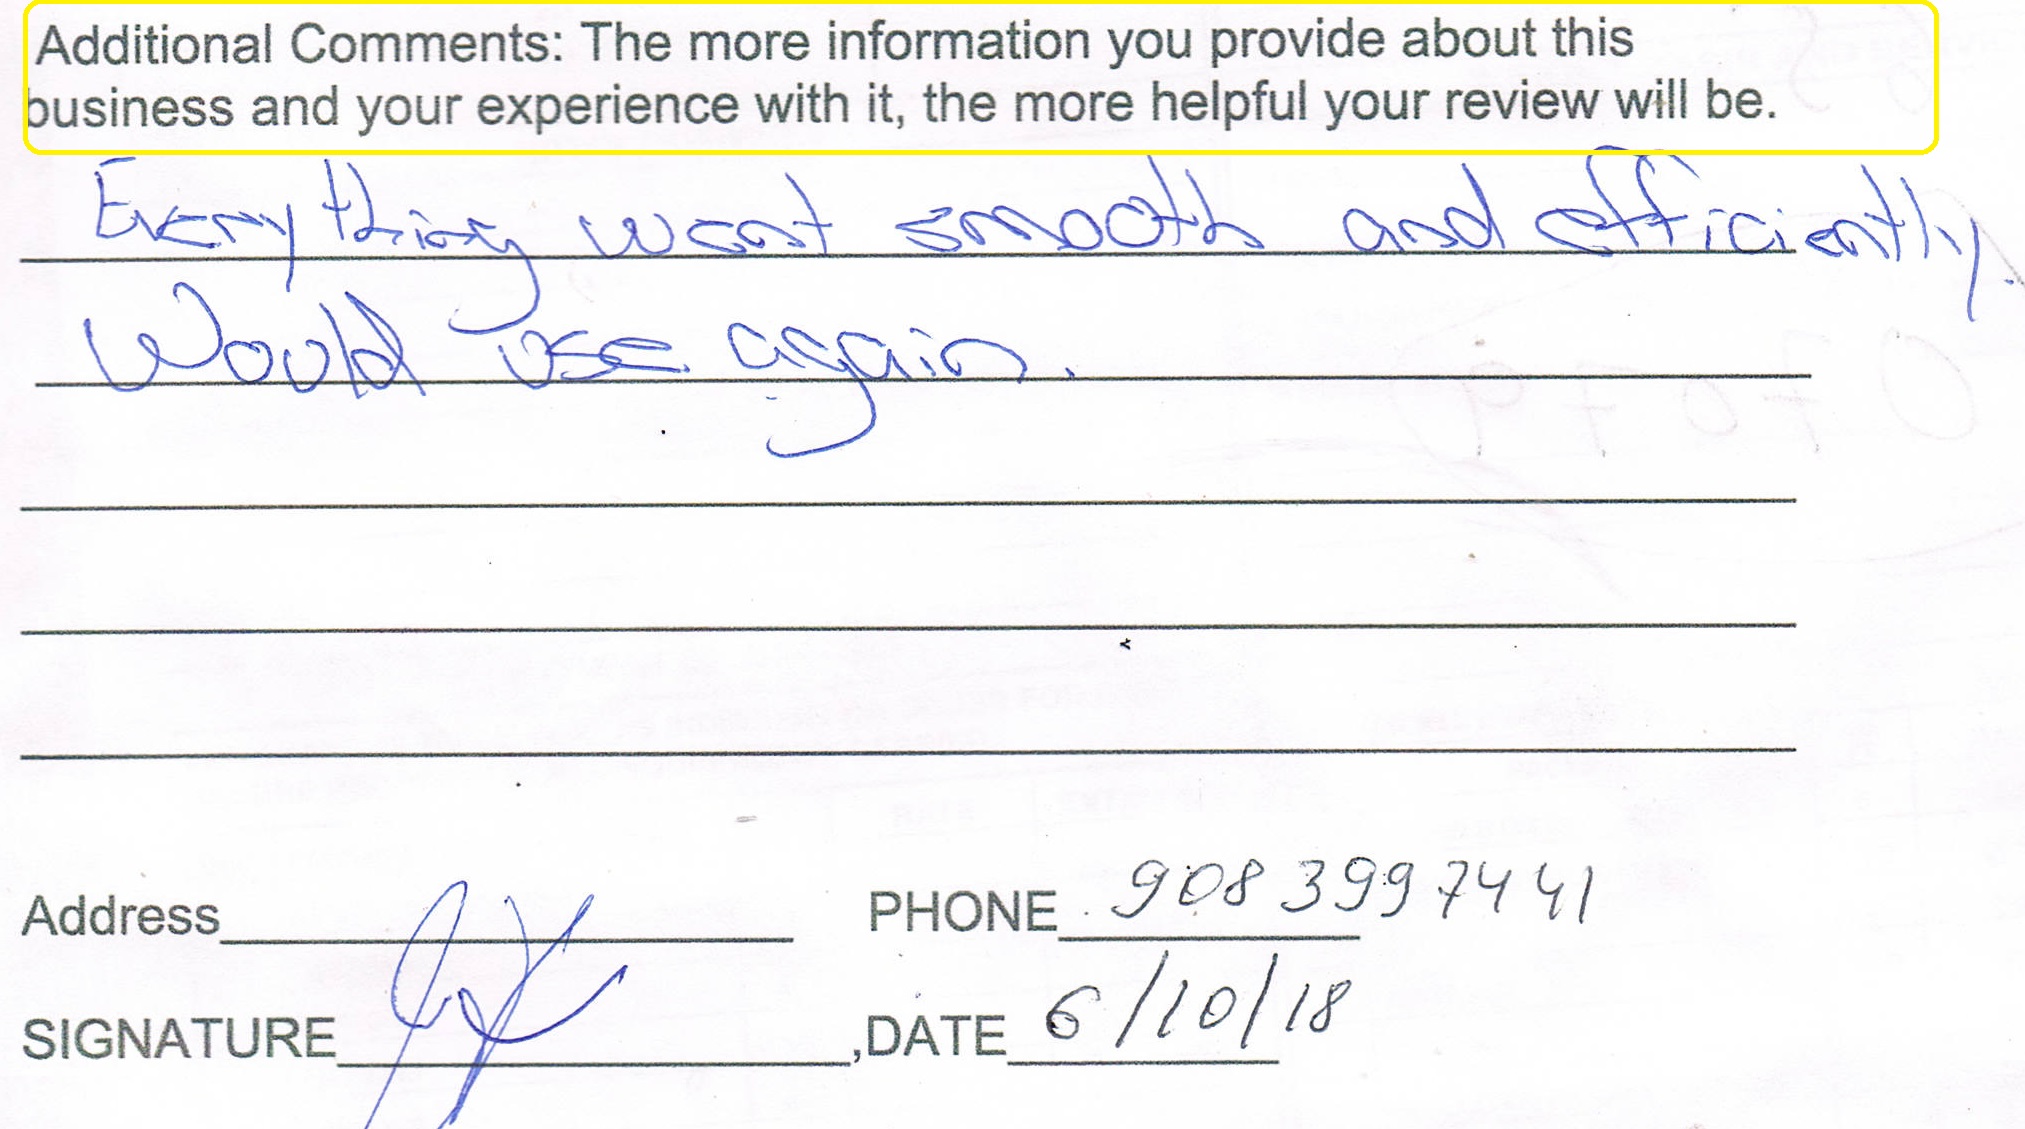 Additional Comments: The more information you provide about this
business and your experience with it, the more helpful your review will be.
Everything went smooth and efficiently.
Would use again.
Address PHONE 908 399 7441
SIGNATURE ,DATE 6/10/18